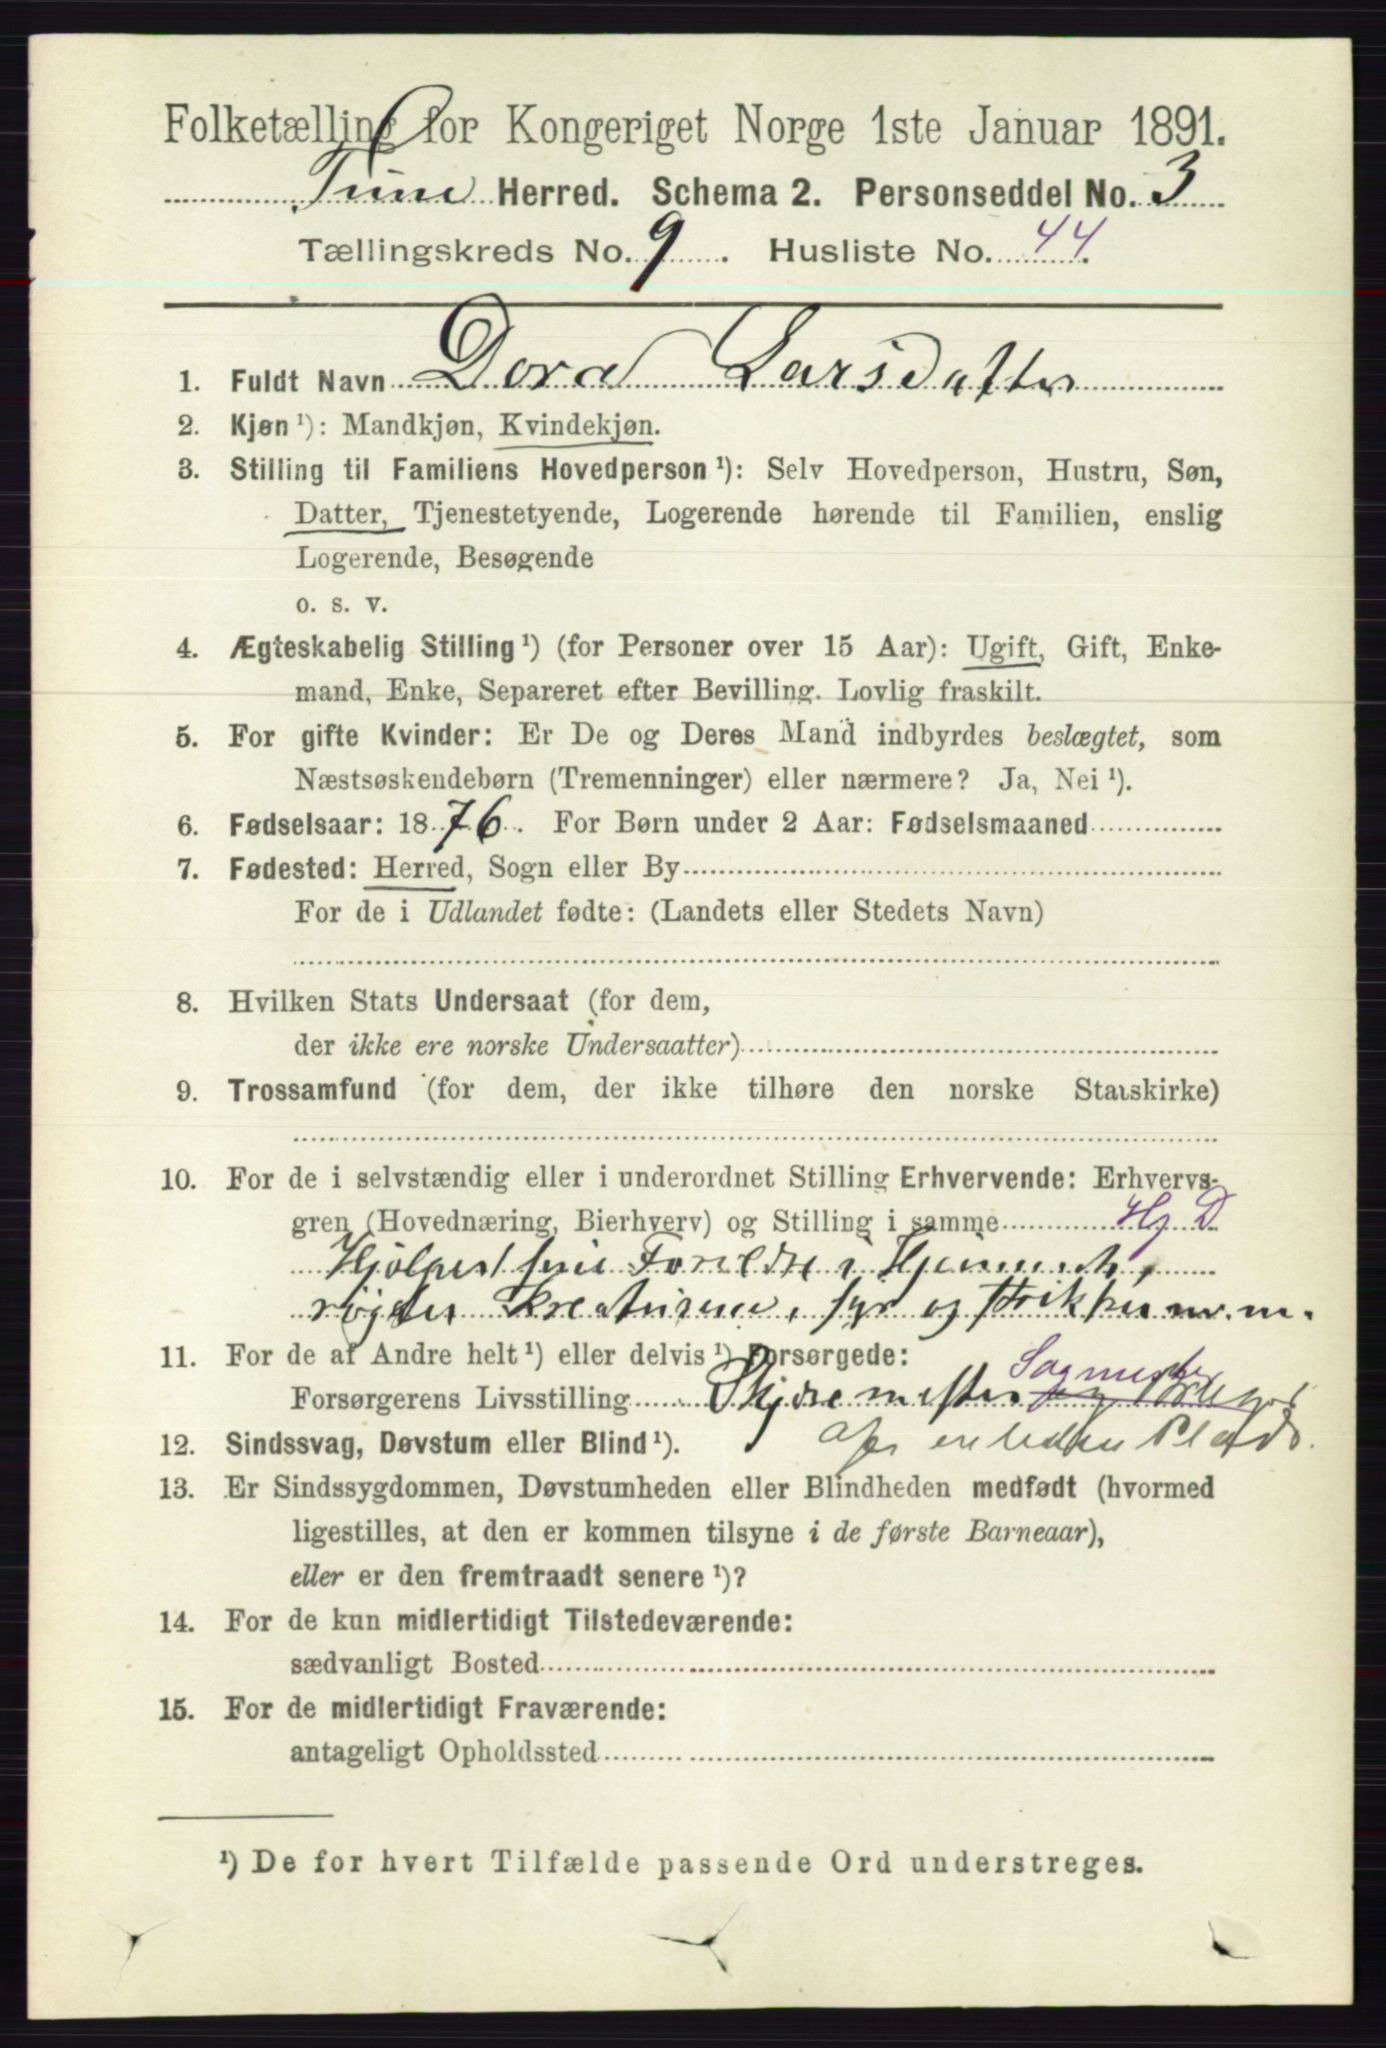 Folketælling for Kongeriget Norge 1ste Januar 1891.
Tune Herred. Schema 2. Personseddel No. 3
Tællingskreds No. 9. Husliste No. 44.
1. Fuldt Navn Dora Larsdatter
2. Kjøn ¹): Mandkjøn, Kvindekjøn.
3. Stilling til Familiens Hovedperson ¹): Selv Hovedperson, Hustru, Søn,
Datter, Tjenestetyende, Logerende hørende til Familien, enslig
Logerende, Besøgende
o. s. v.
4. Ægteskabelig Stilling ¹) (for Personer over 15 Aar): Ugift, Gift, Enke-
mand, Enke, Separeret efter Bevilling. Lovlig fraskilt.
5. For gifte Kvinder: Er De og Deres Mand indbyrdes beslægtet, som
Næstsøskendebørn (Tremenninger) eller nærmere? Ja, Nei ¹).
6. Fødselsaar: 1876. For Børn under 2 Aar: Fødselsmaaned
7. Fødested: Herred, Sogn eller By
For de i Udlandet fødte: (Landets eller Stedets Navn)
8. Hvilken Stats Undersaat (for dem,
der ikke ere norske Undersaatter)
9. Trossamfund (for dem, der ikke tilhøre den norske Statskirke)
10. For de i selvstændig eller i underordnet Stilling Erhvervende: Erhvervs-
gren (Hovednæring, Bierhverv) og Stilling i samme Hj D
Hjælper sine Forældre i Hjemmet,
røgter Kreaturene, syr og strikker m. m.
11. For de af Andre helt ¹) eller delvis ¹) Forsørgede:
Sagmester
Forsørgerens Livsstilling Skjæremester og Bruger
12. Sindssvag, Døvstum eller Blind ¹). af en liden Plads.
13. Er Sindssygdommen, Døvstumheden eller Blindheden medfødt (hvormed
ligestilles, at den er kommen tilsyne i de første Barneaar),
eller er den fremtraadt senere ¹)?
14. For de kun midlertidigt Tilstedeværende:
sædvanligt Bosted
15. For de midlertidigt Fraværende:
antageligt Opholdssted
¹) De for hvert Tilfælde passende Ord understreges.